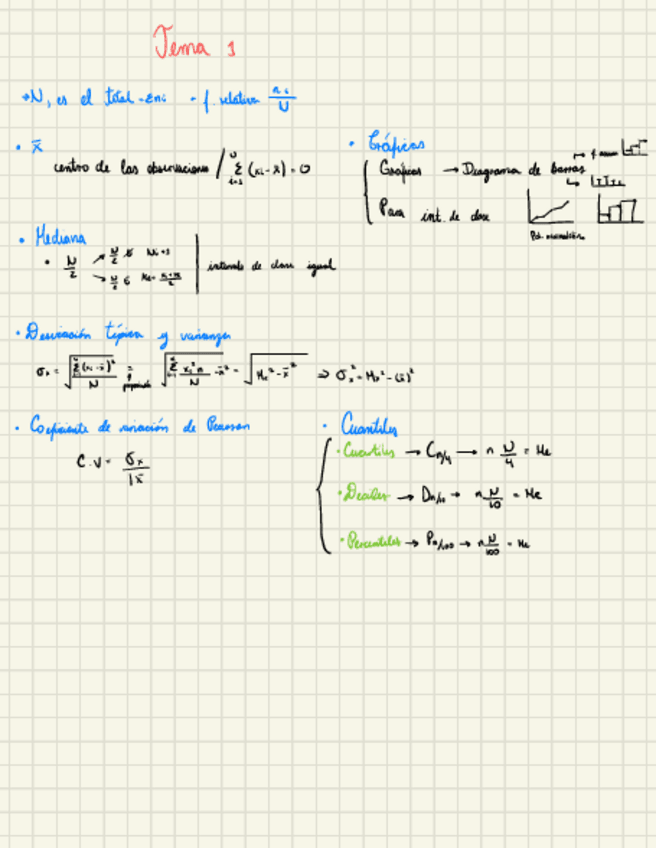 Tema 1
→ N, es el total = Σni · f. relativa ni/N
· x̄
centro de las observaciones / Σ(xi - x̄) = 0
· Gráficos
Gráficos → Diagrama de barras
Para int. de clase
Pol. acumulativo
· Mediana
· N/2
intervalo de clase igual
· Desviación típica y varianza
⇒ σx² = M2² - (x̄)²
· Coeficiente de variación de Pearson
C.V = σx/|x̄|
· Cuantiles
· Cuartiles → Cn/4 → n N/4 = Me
· Deciles → Dn/10 → n N/10 = Me
· Percentiles → Pn/100 → n N/100 = Me